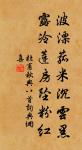 波漂菰米沉雲黑
露冷蓮房墜粉紅
杜甫秋興八首詞典網
集